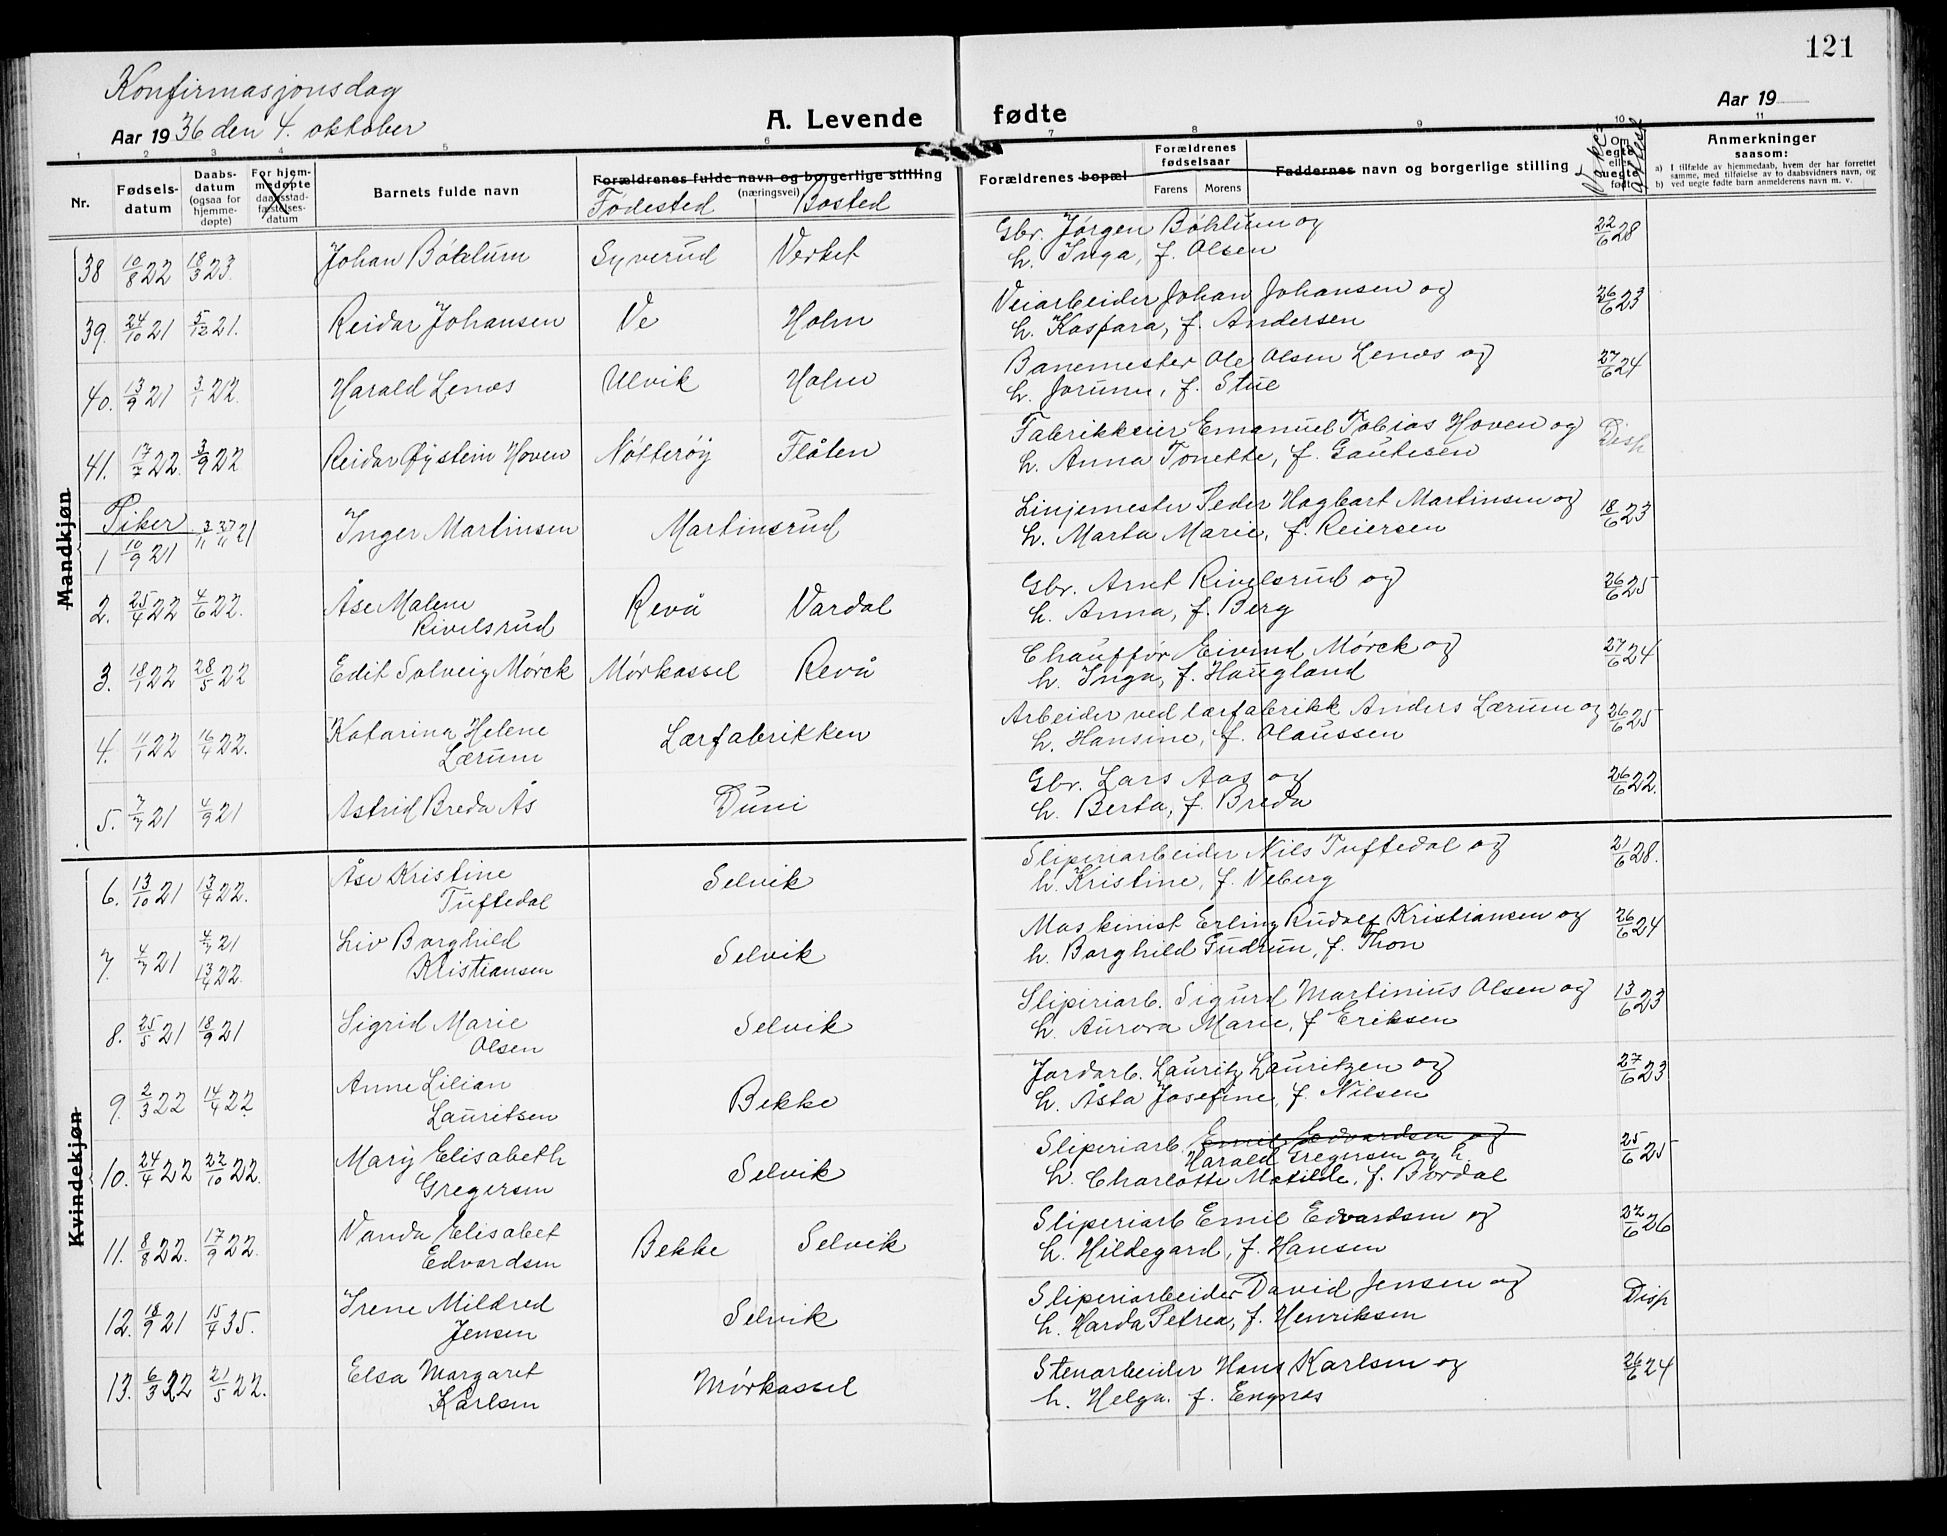 121
Konfirmasjonsdag
Aar 1936 den 4. oktober
A. Levende fødte
Aar 19
1 2 3 4 5 6 7 8 9 10 11
Nr.
Fødsels-
datum
Daabs-
datum
(ogsaa for
hjemme-
døpte)
For hjem-
medøpte
daabsstad-
fæstelses-
datum
Barnets fulde navn
Forældrenes fulde navn og borgerlige stilling
(næringsvei)
Fødested Bosted
Forældrenes bopæl
Forældrenes
fødselsaar
Farens Morens
Faddernes navn og borgerlige stilling
Om
egte
eller
uegte
født
Anmerkninger
saasom:
a) I tilfælde av hjemmedaab, hvem der har forrettet
samme, med tilføielse av to daabsvidners navn, og
b) ved uegte fødte barn anmelderens navn m. v.
Mandkjøn
38 10/8 22 18/3 23. Johan Böhlum Syverud Verket Gbr. Jørgen Böhlum og
h. Inga, f. Olsen 22/6 28
39. 24/10 21 5/12 21. Reidar Johansen Ve Holm Veiarbeider Johan Johansen og
h. Kaspara, f. Andersen 26/6 23
40. 13/9 21 3/1 22. Harald Lenæs Ulvik Holm Banemester Ole Olsen Lenæs og
h. Jorunn, f. Stue 27/6 24
41. 17/7 22. 3/9 22 Reidar Øystein Hoven Nötteröy Flåten Fabrikkeier Emanuel Tobias Hoven og
h. Anna Tonette, f. Gautesen Disp
Piker
1 10/9 21 Inger Martinsen Martinsrud Linjemester Peder Hagbart Martinsen og
h. Marta Marie, f. Reiersen 18/6 23
2. 25/4 22 4/6 22. Åse Malene
Rivelsrud Revå Vardal Gbr. Arnt Rivelsrud og
h. Anna, f. Berg 26/6 25
3. 18/1 22 28/5 22 Edit Solveig Mörck Mörkassel Revå Chauffør Eivind Mörck og
h. Inga, f. Haugland 27/6 24
4. 11/1 22 16/4 22. Katarina Helene
Lærum Lærfabrikken Arbeider ved lærfabrikk Anders Lærum og
h. Hansine, f. Olaussen 26/6 25
5. 7/7 21 4/9 21 Astrid Breda Ås Duni Gbr. Lars Aas og
h. Berta, f. Breda 26/6 22.
Kvindekjøn
6. 13/10 21 13/4 22. Åse Kristine
Tuftedal Selvik Sliperiarbeider Nils Tuftedal og
h. Kristine, f. Veberg 21/6 28.
7. 4/7 21 4/7 21
13/4 22. Liv Borghild
Kristiansen Selvik Maskinist Erling Rudolf Kristiansen og
h. Borghild Gudrun, f. Thon 26/6 24
8. 25/5 21 18/9 21 Sigrid Marie
Olsen Selvik Sliperiarb. Sigurd Martinius Olsen og
h. Aurora Marie, f Eriksen 13/6 23
9. 2/3 22 14/4 22 Anne Lilian
Lauritsen Bekke Jordarb. Lauritz Lauritzen og
h. Åsta Josefine, f. Nilsen 27/6 23
10. 24/4 22 22/10 22. Mary Elisabeth
Gregersen Selvik Sliperiarb. Emil Edvardsen og
Harald Gregersen og h.
h. Charlotte Matilde, f. Bordal 25/6 25
11. 8/8 22. 17/9 22. Vanda Elisabet
Edvardsen Bekke Selvik Sliperiarb Emil Edvardsen og
h. Hildegard, f. Hansen 22/6 26
12. 18/9 21 15/4 35. Irene Mildred
Jensen Selvik Sliperiarbeider David Jensen og
h. Harda Petrea, f. Henriksen Disp
13. 6/3 22 21/5 22. Elsa Margaret
Karlsen Mörkassel Stenarbeider Hans Karlsen og
h. Helga. f. Engnæs 26/6 24